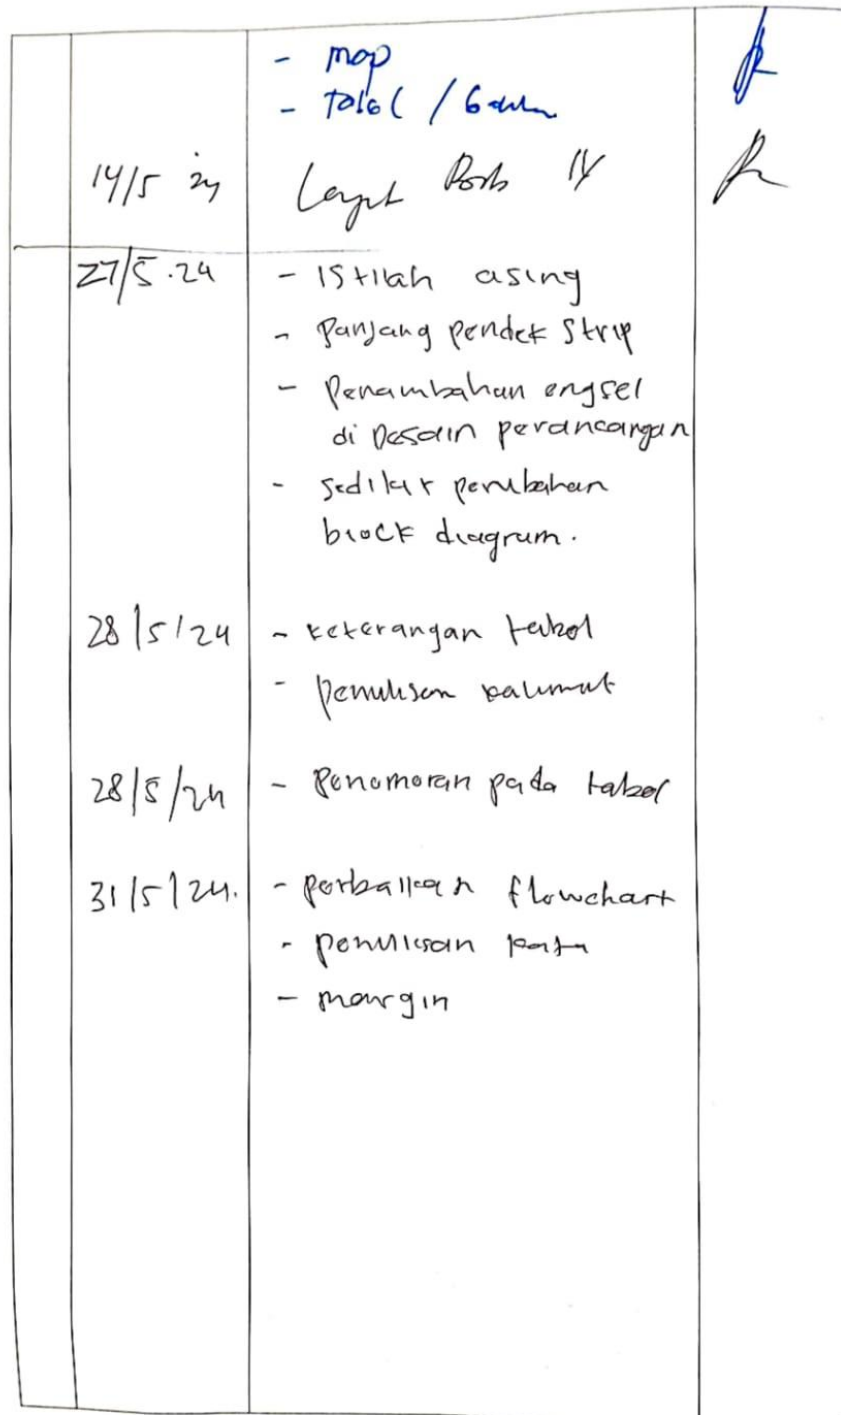 - map
- Tabel / Gambar
14/5 24 Lanjut Bab IV
27/5.24 - istilah asing
- panjang pendek strip
- Penambahan engsel
di Desain perancangan
- sedikit perubahan
block diagram.
28/5/24 - keterangan tabel
- penulisan kalimat
28/5/24 - Penomoran pada tabel
31/5/24. - perbaikan flowchart
- penulisan kata
- margin